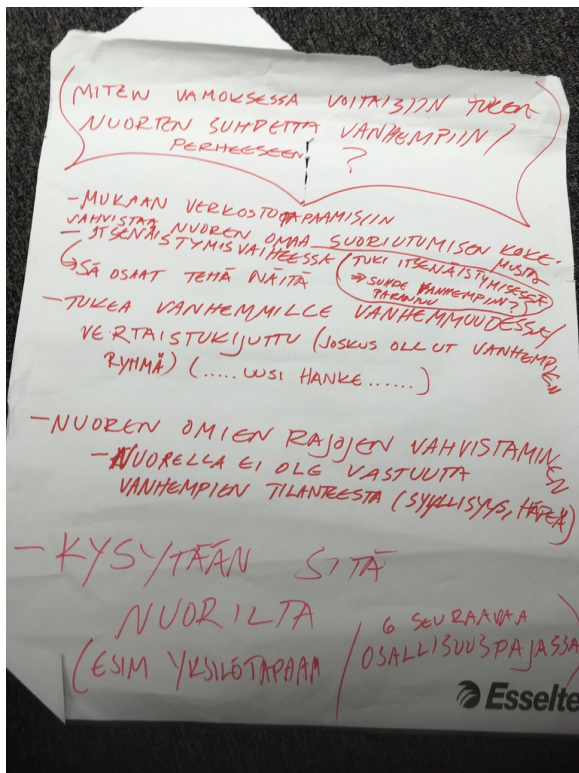 MITEN VAMOKSESSA VOITAISIIN TUKEA
NUORTEN SUHDETTA VANHEMPIIN/
PERHEESEEN ?
- MUKAAN VERKOSTOTAPAAMISIIN
VAHVISTAA NUOREN OMAA SUORIUTUMISEN KOKE-
MUSTA
- ITSENÄISTYMISVAIHEESSA
SÄ OSAAT TEHÄ NÄITÄ
(TUKI ITSENÄISTYMISESSÄ
→ SUHDE VANHEMPIIN?
PARANTUU
- TUKEA VANHEMMILLE VANHEMMUUDESSA/
VERTAISTUKIJUTTU (JOSKUS OLLUT VANHEMPIEN
RYHMÄ) (.....UUSI HANKE......)
- NUOREN OMIEN RAJOJEN VAHVISTAMINEN
- NUORELLA EI OLE VASTUUTA
VANHEMPIEN TILANTEESTA (SYYLLISYYS, HÄPEÄ)
- KYSYTÄÄN SITÄ
NUORILTA
(ESIM YKSILÖTAPAAM / 6 SEURAAVAA
OSALLISUUSPAJASSA)
Esselte